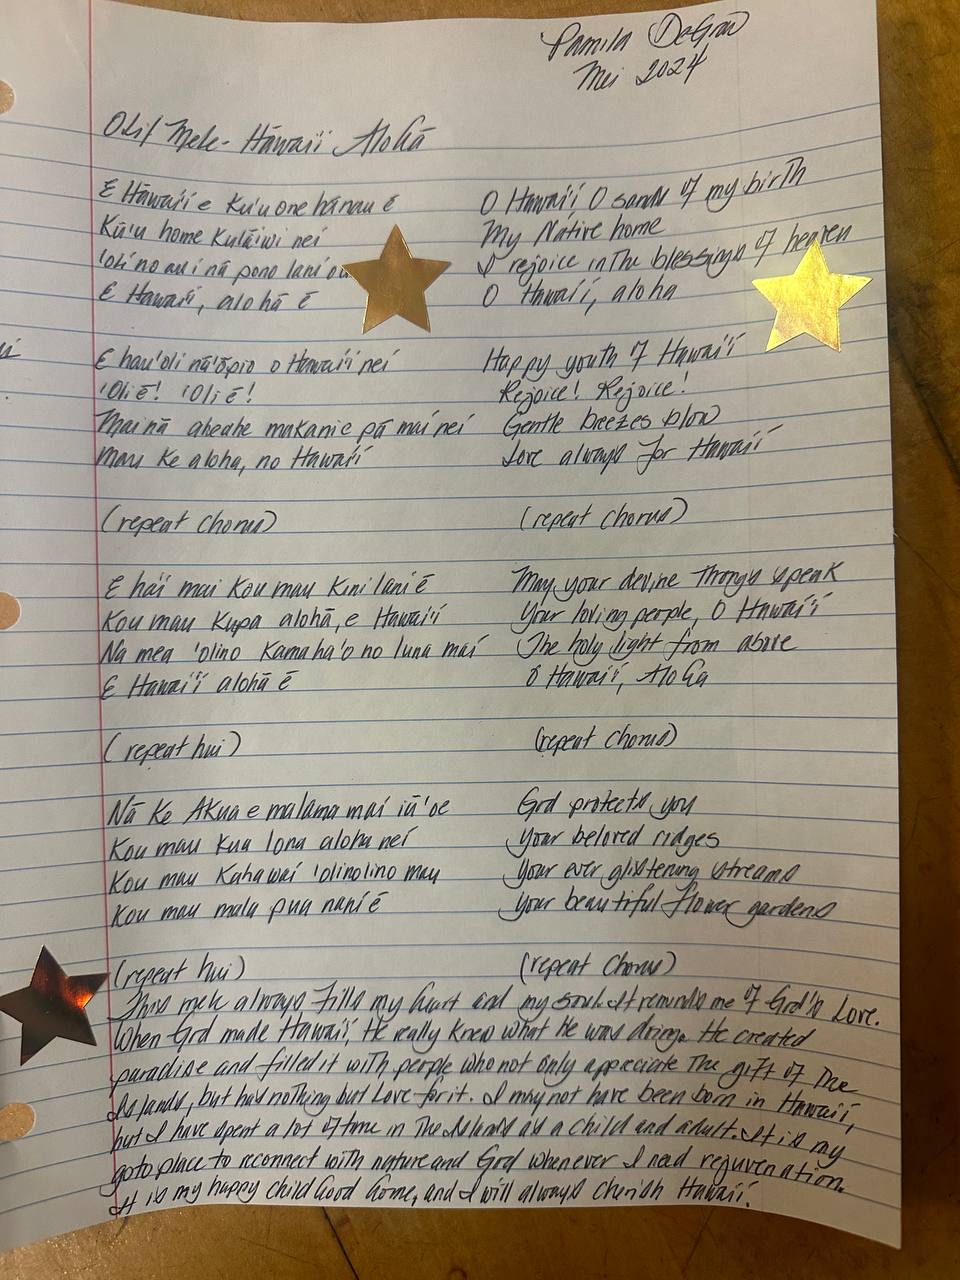 Pamila DeGraw
Mei 2024
Oli/ Mele- Hāwai'i Alohā
E Hāwai'i e Ku'u one hānau ē
Kū'u home Kulāiwi nei
'Oli no au i nā pono lani
E Hawai'i, alohā ē
E hau'oli nā 'ōpio o Hawai'i nei
'Oli ē! 'Oli ē!
Mai nā aheahe makanie pā mai nei
Mau Ke aloha, no Hawai'i
(repeat Chorus)
E ha'i mai Kou mau Kini lani ē
Kou mau Kupa alohā, e Hawai'i
Na mea 'olino Kamaha'o no luna mai
E Hawai'i alohā ē
(repeat hui)
Nā Ke Akua e malama mai iā 'oe
Kou mau Kua lona aloha nei
Kou mau Kahawai 'olinolino mau
Kou mau mala pua nani ē
(repeat hui)
O Hawai'i O sands of my birth
My Native home
I rejoice in The blessings of heaven
O Hawai'i, aloha
Happy youth of Hawai'i
Rejoice! Rejoice!
Gentle breezes blow
Love always for Hawai'i
(repeat Chorus)
May your devine Throngs speak
Your loving people, O Hawai'i
The holy light from above
O Hawai'i, Aloha
(repeat Chorus)
God protects you
Your beloved ridges
Your ever glistening streams
Your beautiful flower gardens
(repeat Chorus)
This mele always Fills my heart and my soul. It reminds me of God's Love.
When God made Hawai'i, He really Knew what He was doing. He created
paradise and filled it with people who not only appreciate The gift of The
Islands, but has nothing but Love for it. I may not have been born in Hawai'i,
but I have spent a lot of time in The Islands as a child and adult. It is my
goto place to reconnect with nature and God whenever I need rejuvenation.
It is my happy childhood home, and I will always cherish Hawai'i.